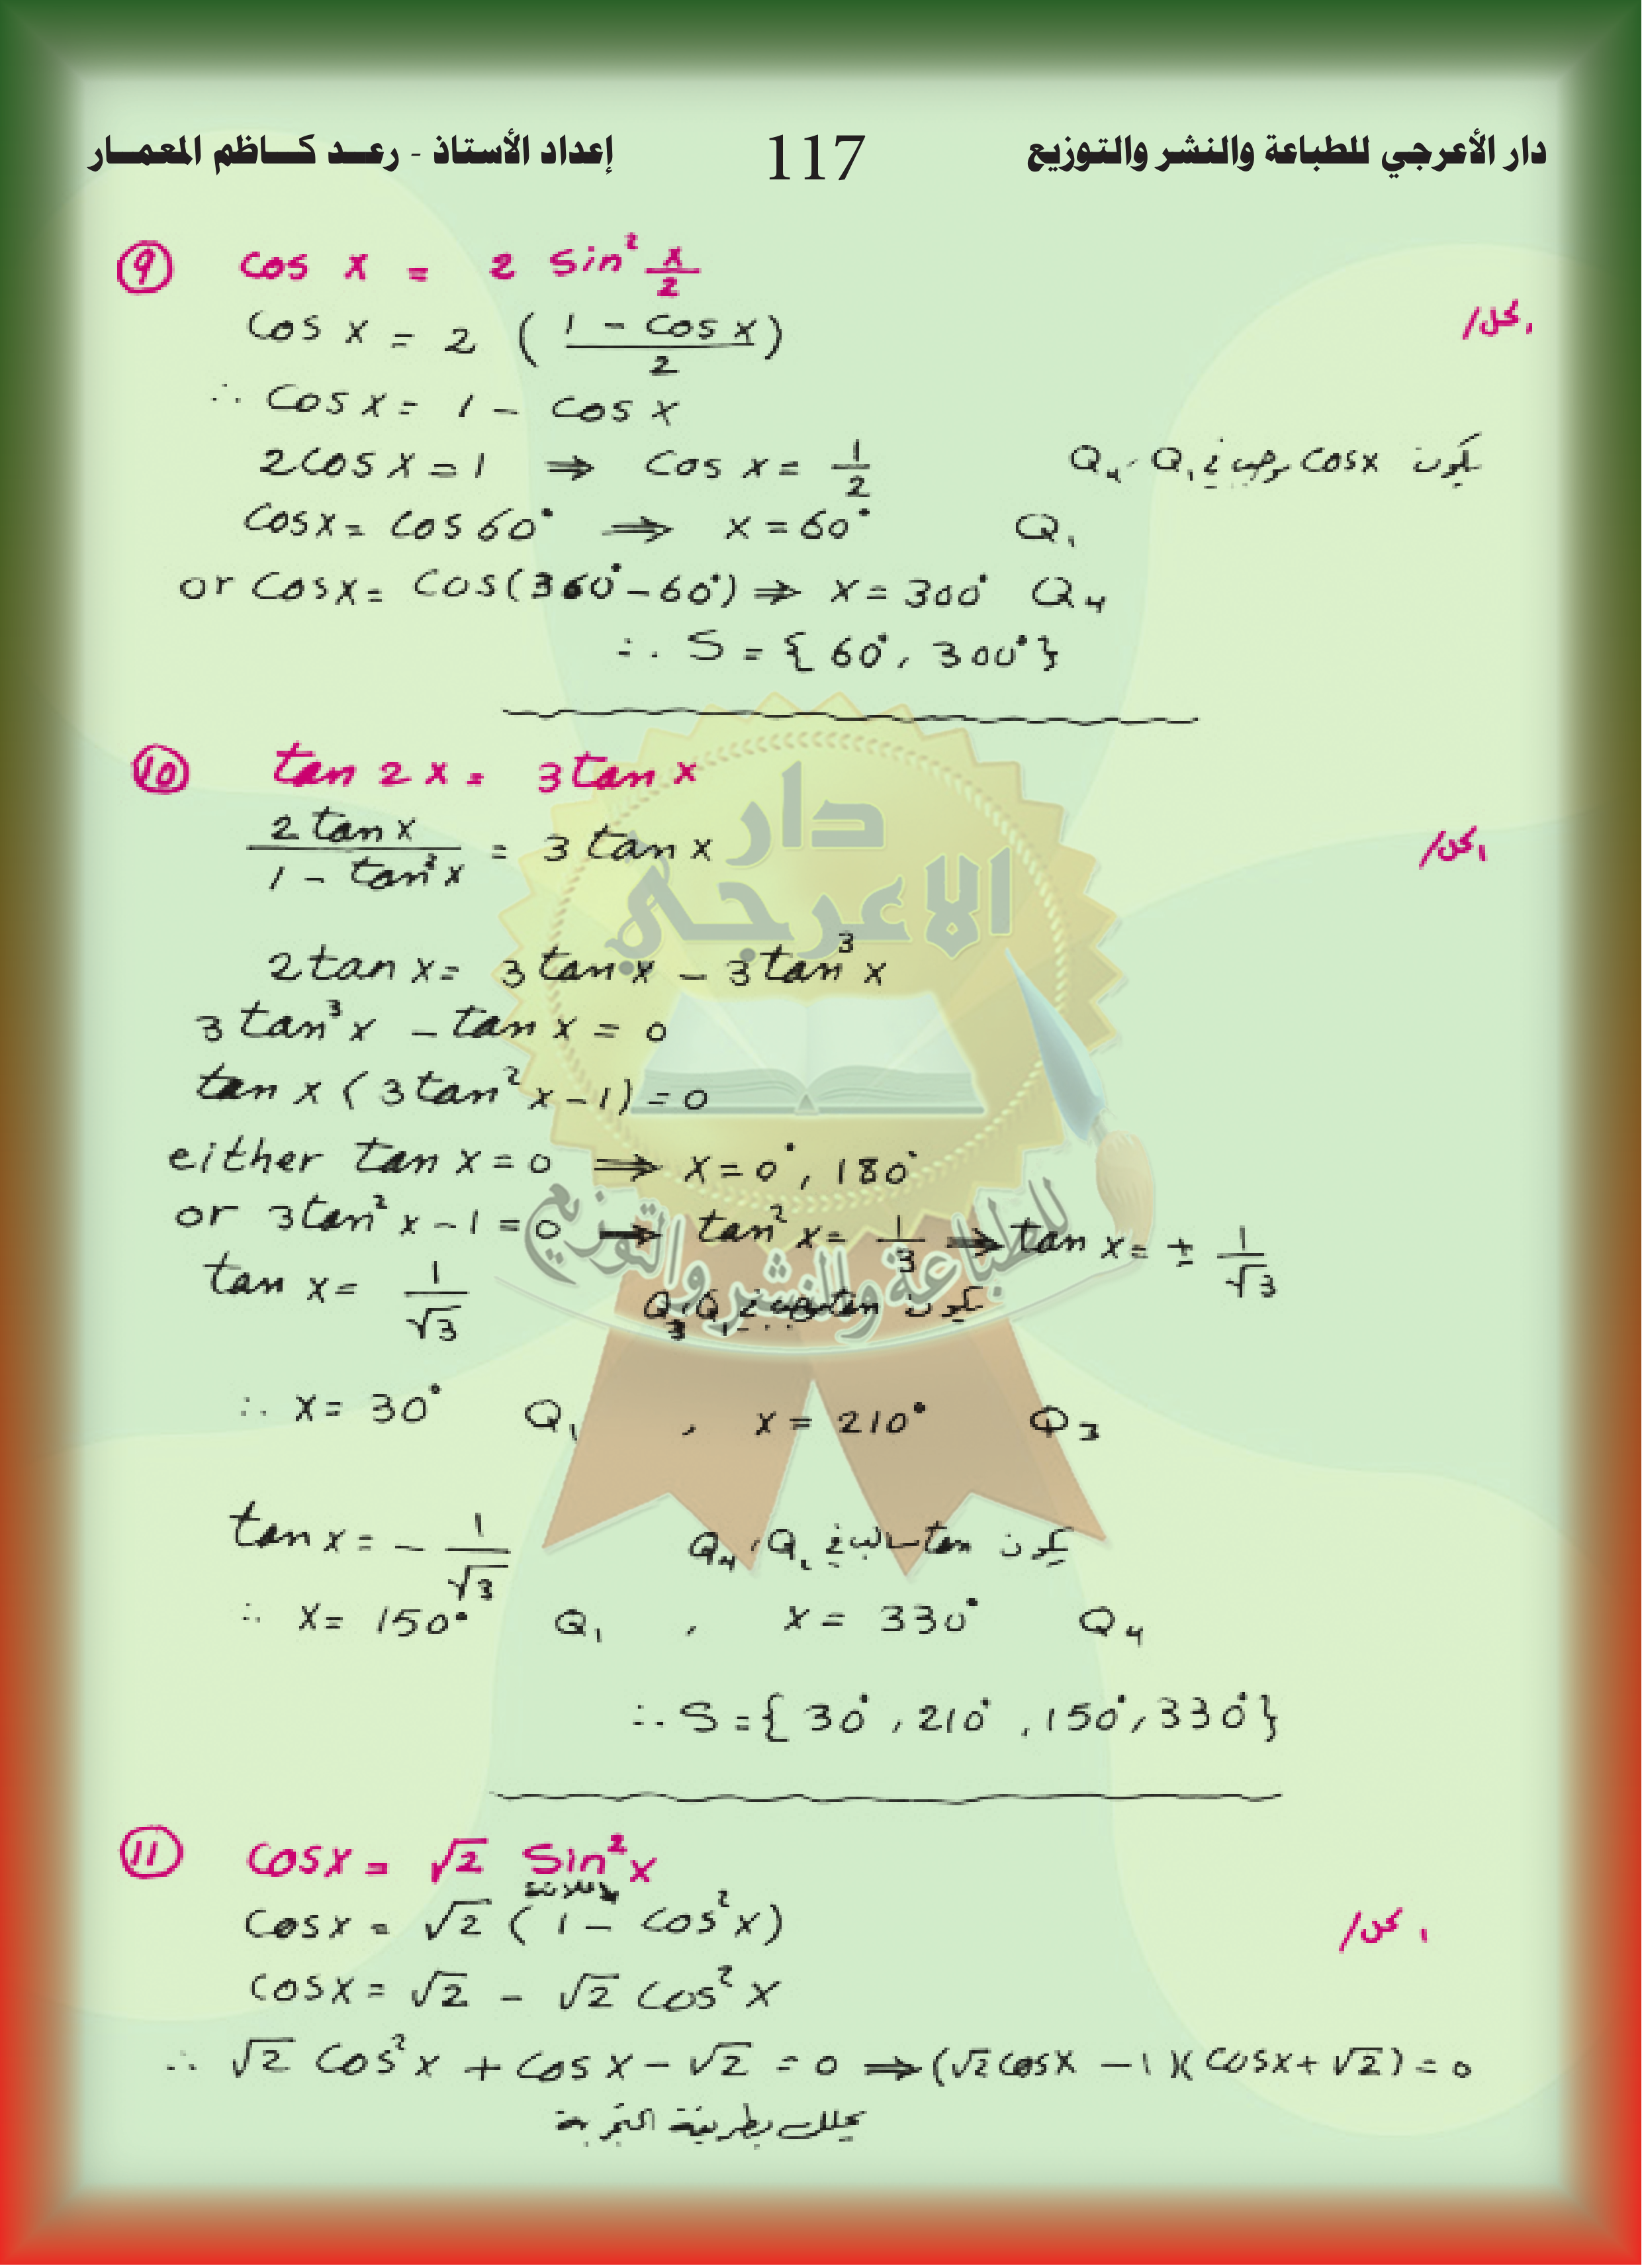 دار الأعرجي للطباعة والنشر والتوزيع 117 إعداد الأستاذ - رعــد كــاظم المعمــار
⑨ cos x = 2 sin² x/2
الحل/
cos x = 2 ( (1 - cos x)/2 )
∴ cos x = 1 - cos x
2cos x = 1 ⇒ cos x = 1/2 يكون cosx موجب في Q₁، Q₄
cos x = cos 60° ⇒ x = 60° Q₁
or cos x = cos(360° - 60°) ⇒ x = 300° Q₄
∴ S = { 60°, 300° }
⑩ tan 2x = 3 tan x
دار
الاعرجي
للطباعة والنشر والتوزيع
الحل/
2 tan x / (1 - tan² x) = 3 tan x
2 tan x = 3 tan x - 3 tan³ x
3 tan³ x - tan x = 0
tan x ( 3 tan² x - 1 ) = 0
either tan x = 0 ⇒ x = 0°, 180°
or 3tan² x - 1 = 0 ⇒ tan² x = 1/3 ⇒ tan x = ± 1/√3
tan x = 1/√3 يكون tan موجب في Q₁، Q₃
∴ x = 30° Q₁ , x = 210° Q₃
tan x = - 1/√3 يكون tan سالب في Q₂، Q₄
∴ x = 150° Q₁ , x = 330° Q₄
∴ S = { 30°, 210°, 150°, 330° }
⑪ cos x = √2 sin² x
الحل/
cos x = √2 ( 1 - cos² x )
cos x = √2 - √2 cos² x
∴ √2 cos² x + cos x - √2 = 0 ⇒ (√2 cos x - 1)( cos x + √2 ) = 0
تحلل بطريقة التجربة